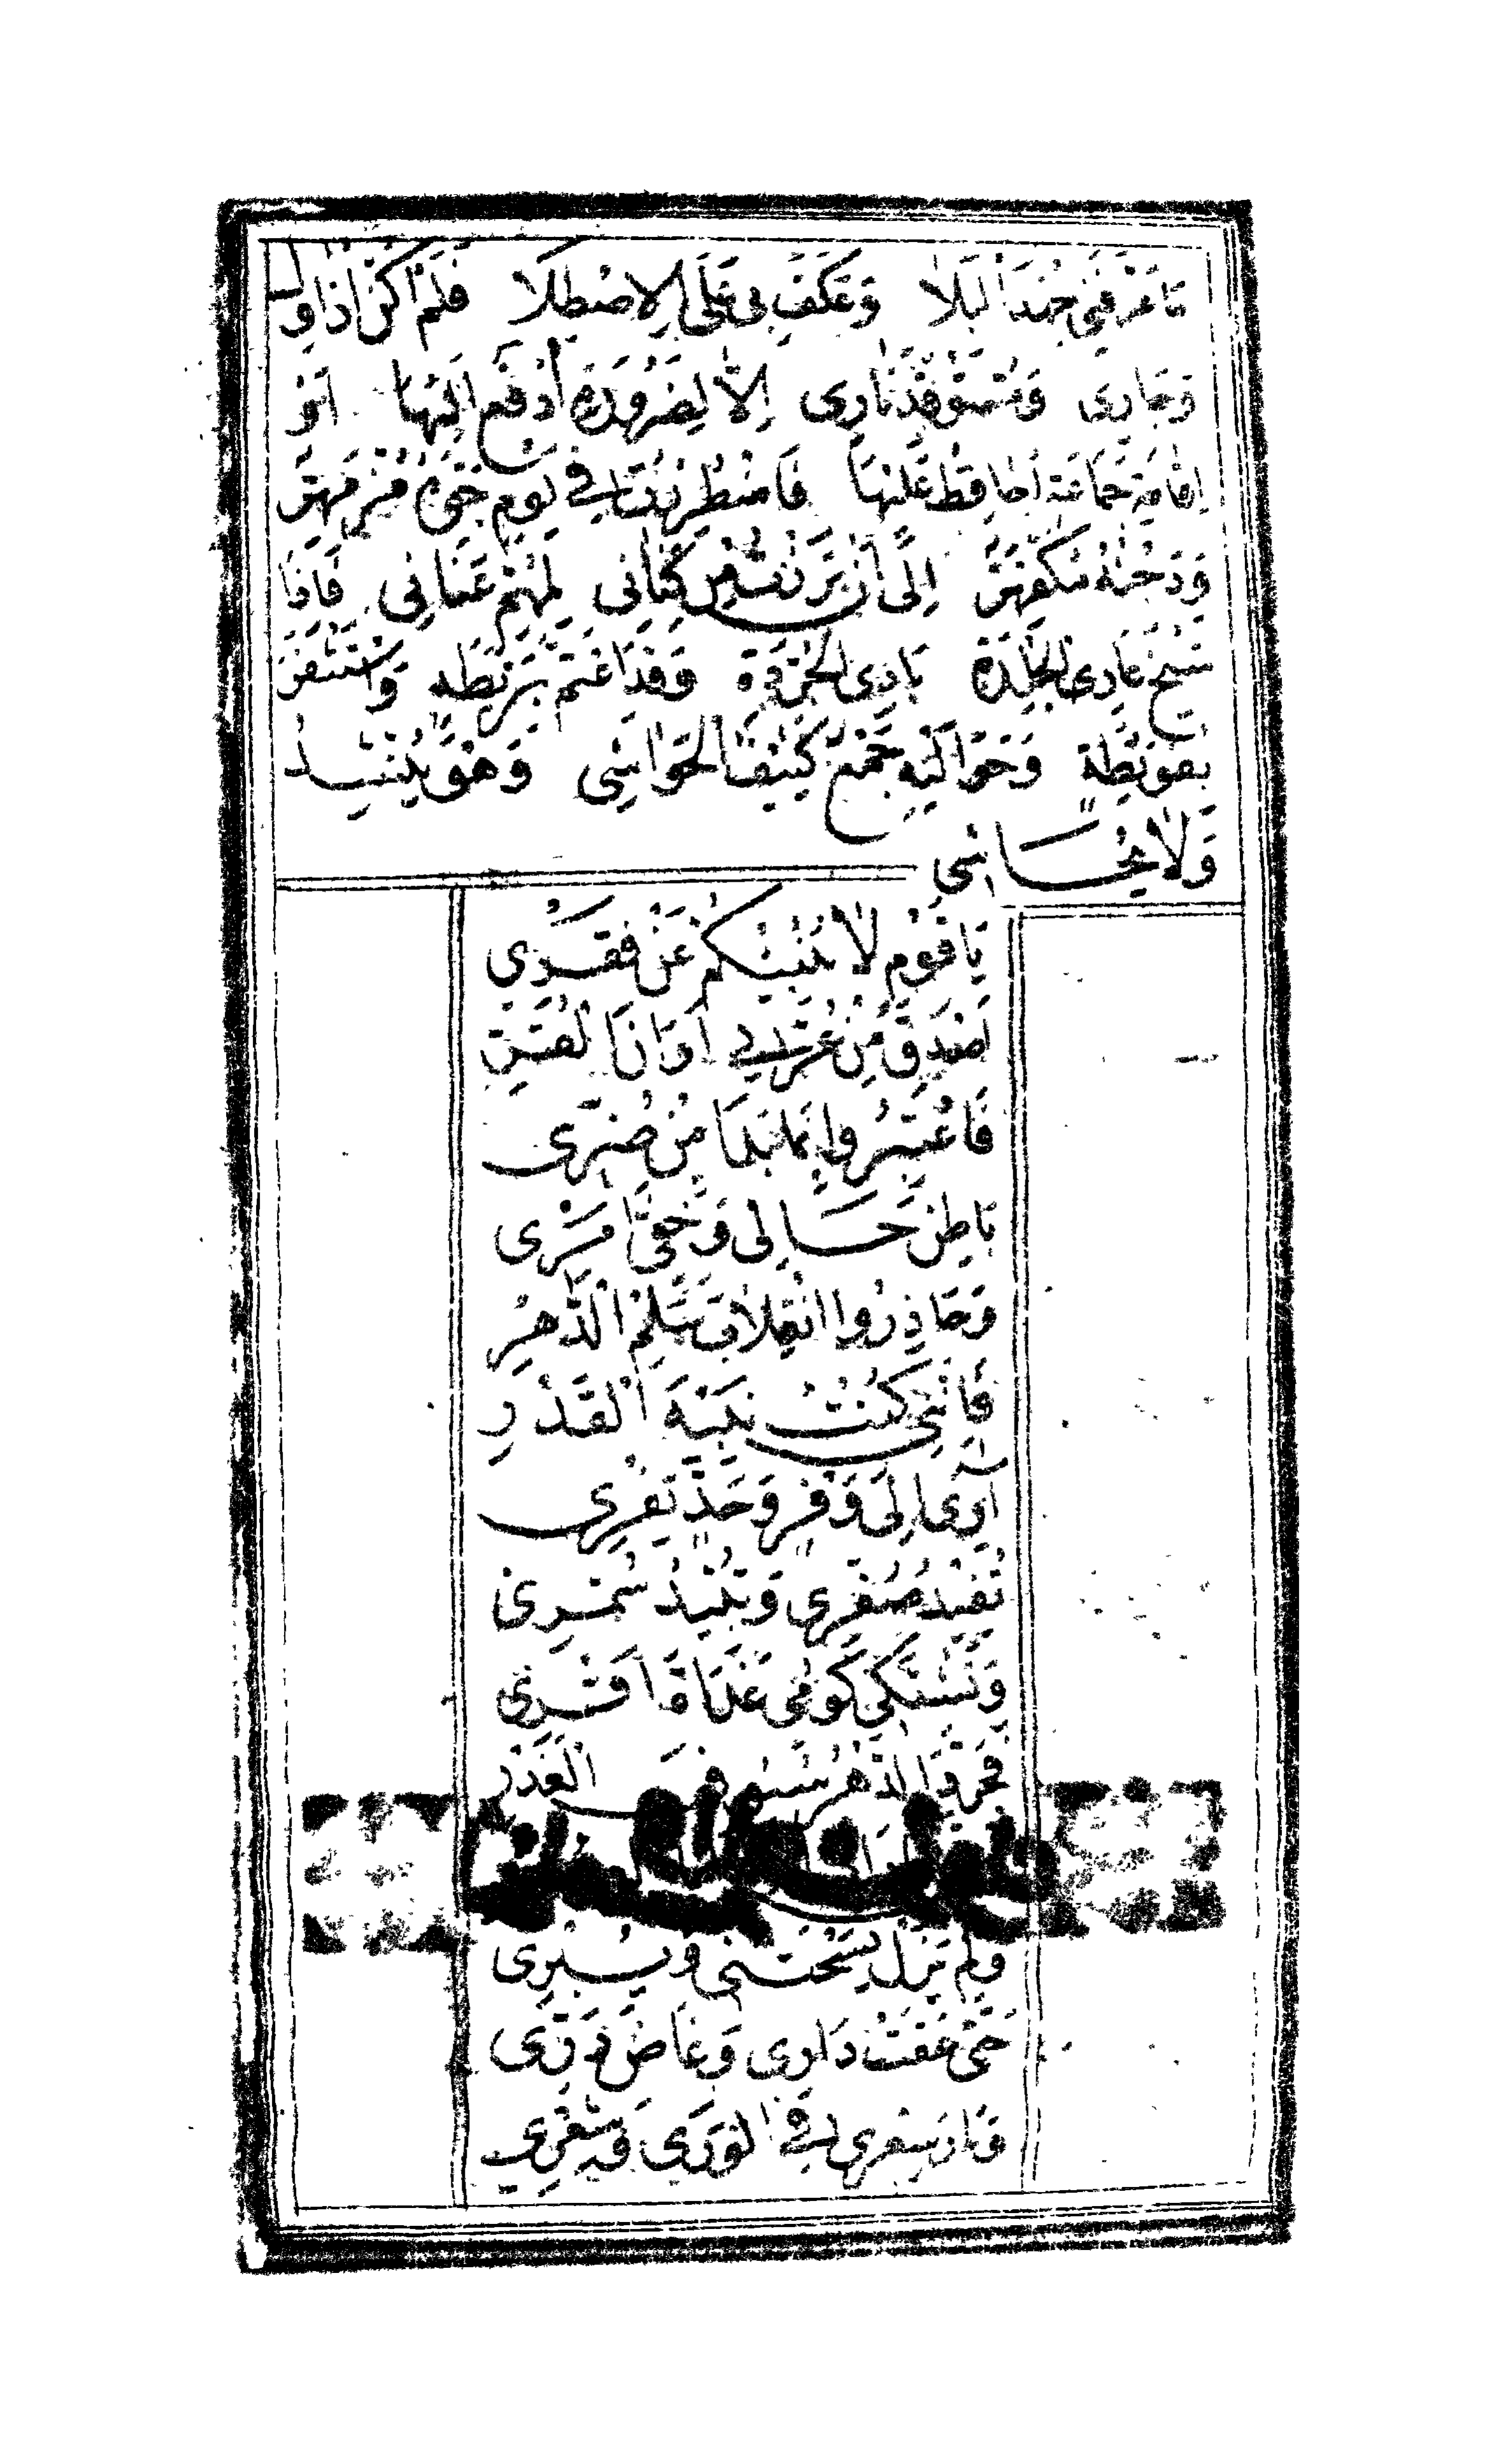 ما عرفني جهد البلا وعكف بي على الاصطلا فلم اكن ازاول
وجاري ومستوقد ناري الا لضرورة ادفع اليها او
اقامة جماعة احافظ عليها فاضطررت في يوم جوه مزمهر
ودجنه مكفهر الى ان برزت من كناني لمهم عناني فاذا
شيخ عاري الجلدة بادي الجردة وقد اعتم بريطة واستثفر
بفويطة وحواليه جمع كثيف الحواشي وهو ينشد
ولا يحاشي
يا قوم لا ينبيكم عن فقري
اصدق من عريي اوان القر
فاعتبروا بما بدا من ضري
باطن حالي وخفي امري
وحاذروا انقلاب سلم الدهر
فانني كنت نبيه القدر
آوي الى وفر وحد يفري
تفيد صفري وتبيد سمري
وتشتكي كومي غداة اقري
فجرد الدهر سيوف الغدر
ولم يزل يسحتني ويبري
حتى عفت داري وغاض دري
وبار سعري في الورى وشعري